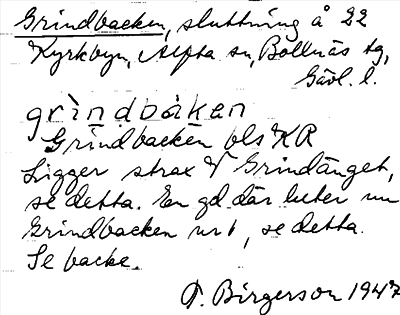 Grindbacken, sluttning å 22
Kyrkbyn, Alfta sn, Bollnäs tg,
Gävl. l.
grìndbàkan
Grindbacken bls KR
Ligger strax V Grindänget,
se detta. En gd där heter nu
Grindbacken nr 1, se detta.
Se backe.
P. Birgerson 1947